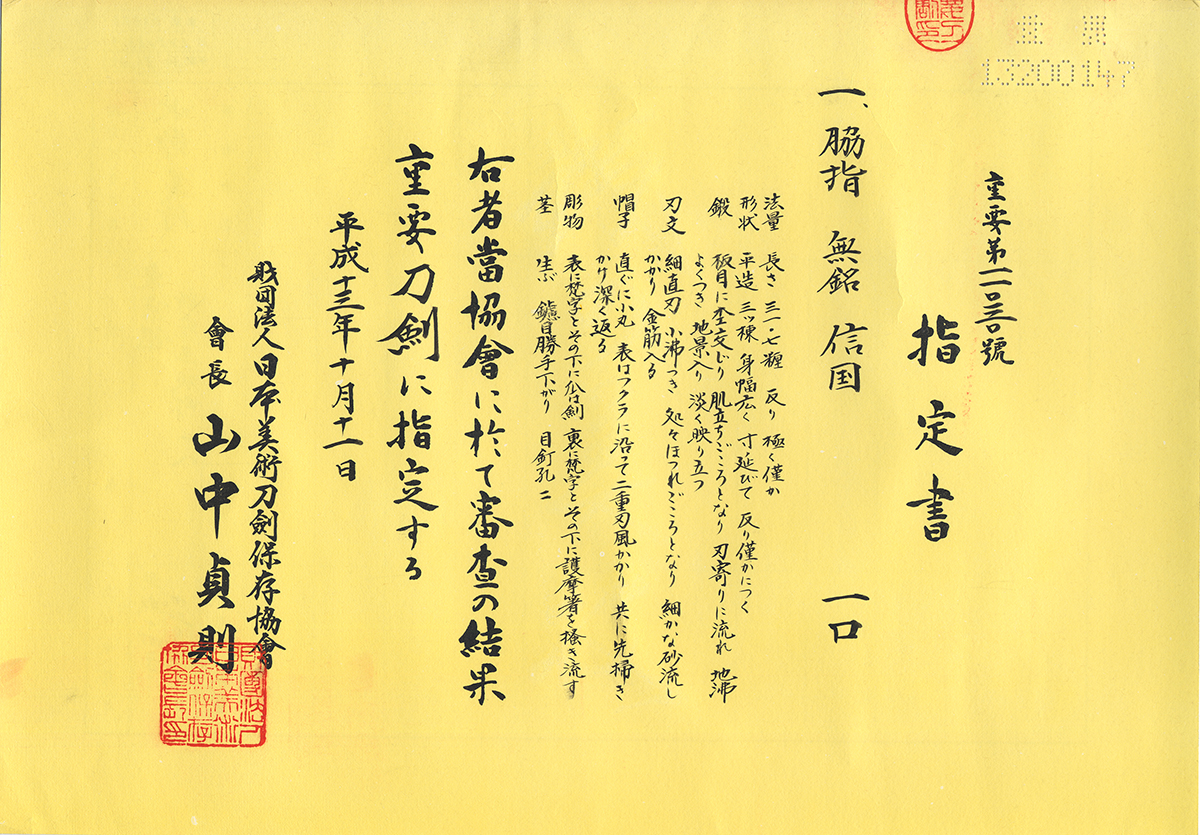 13200147
重要第一一〇三〇號
指定書
一、脇指 無銘 信国 一口
法量 長さ 三一・七糎 反り 極く僅か
形状 平造 三ッ棟 身幅広く 寸延びて 反り僅かにつく
鍛 板目に杢交じり 肌立ちごころとなり 刃寄りに流れ 地沸
よくつき 地景入り 淡く映り立つ
刃文 細直刃 小沸つき 処々ほつれごころとなり 細かな砂流し
かかり 金筋入る
帽子 直ぐに小丸 表はフクラに沿って二重刃風かかり 共に先掃き
かけ 深く返る
彫物 表に梵字とその下に爪付剣 裏に梵字とその下に護摩箸を掻き流す
茎 生ぶ 鑢目勝手下がり 目釘孔二
右者當協會に於て審査の結果
重要刀剣に指定する
平成十三年十月十一日
財団法人日本美術刀劍保存協會
會長 山中貞則